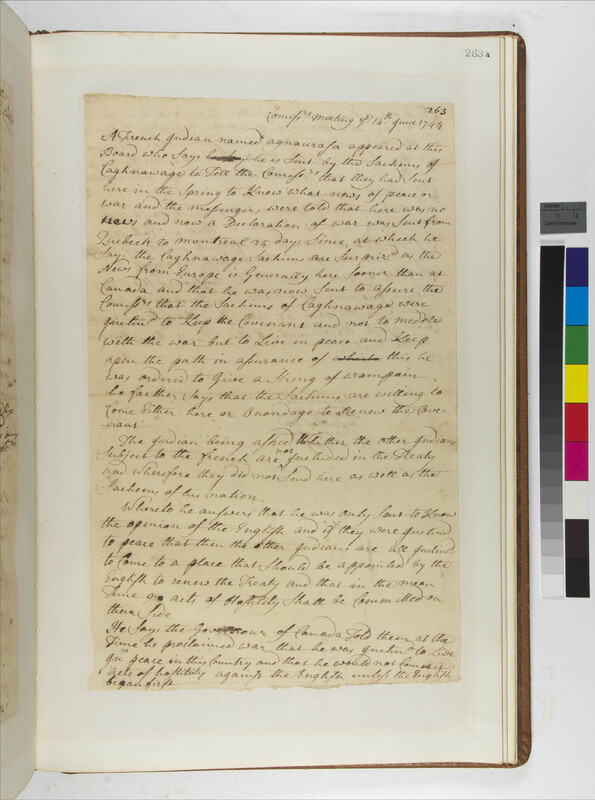 263a
263
Comiss.rs Meeting ye 14th June 1744
A French Indian named agnaurasa appeared at this
Board who Says he is Sent by the Sachims of
Caghnawage to Tell the Comiss.rs that they had Sent
here in the Spring to Know what news of peace or
war and the messengers were told that here was no
news and now a Declaration of war was Sent from
Quebeck to montreal 25 days Since, at which he
Says the Caghnawage Sachims are Surpriz'd as the
News from Europe is Generally here Sooner than at
Canada and that he was now Sent to assure the
Comiss.rs that the Sachims of Caghnawage were
Inclin'd to Keep the Covenant and not to meddle
with the war but to Live in peace and Keep
open the path in assurance of which this he
was ordered to Give a String of wampain,
he farther Says that the Sachims are willing to
Come Either here or Onondage to Renew the Cove-
nant
The Indian being asked Whether the other Indians
Subject to the French are not Included in the Treaty
and wherefore they did not Send here as well as the
Sachems of his nation.
Whereto he answers that he was only Sent to Know
the opinion of the English and if they were Inclind
to peace that then the other Indians are all Inclind
to Come to a place that Should be appointed by the
English to renew the Treaty and that in the mean
Time no acts of Hostility Shall be Committed on
their Side
He Says the Governour of Canada Told them at the
Time he proclaimed war that he was Inclin'd to Live
In peace in this Country and that he would not Commit
acts of hostility against the English unless the English
began first